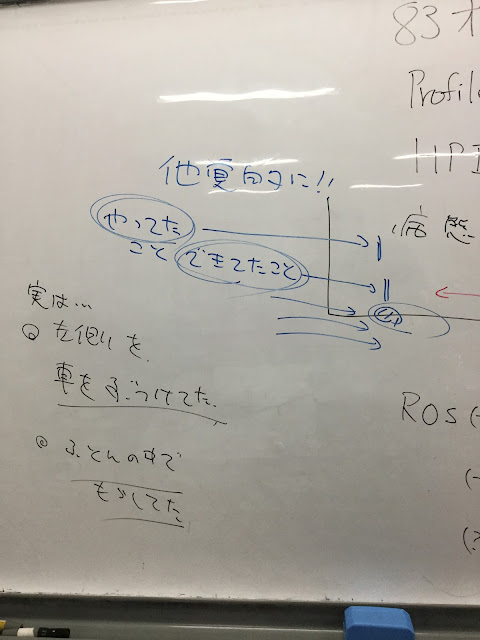 83才
Profile
HPI
他覚的に!!
やってた
こと できてたこと
病態
実は…
左側を
車をぶつけてた
ROS (-
(-
ふとんの中で
もらしてた
(?